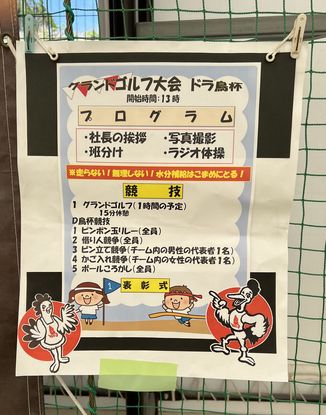 グランドゴルフ大会 ドラ鳥杯
開始時間:13時
プログラム
・社長の挨拶 ・写真撮影
・班分け ・ラジオ体操
※走らない!無理しない!水分補給はこまめにとる!
競 技
1 グランドゴルフ(1時間の予定)
15分休憩
D鳥杯競技
1 ピンポン玉リレー(全員)
2 借り人競争(全員)
3 ピン立て競争(チーム内の男性の代表者1名)
4 かご入れ競争(チーム内の女性の代表者1名)
5 ボールころがし(全員)
1
表彰式